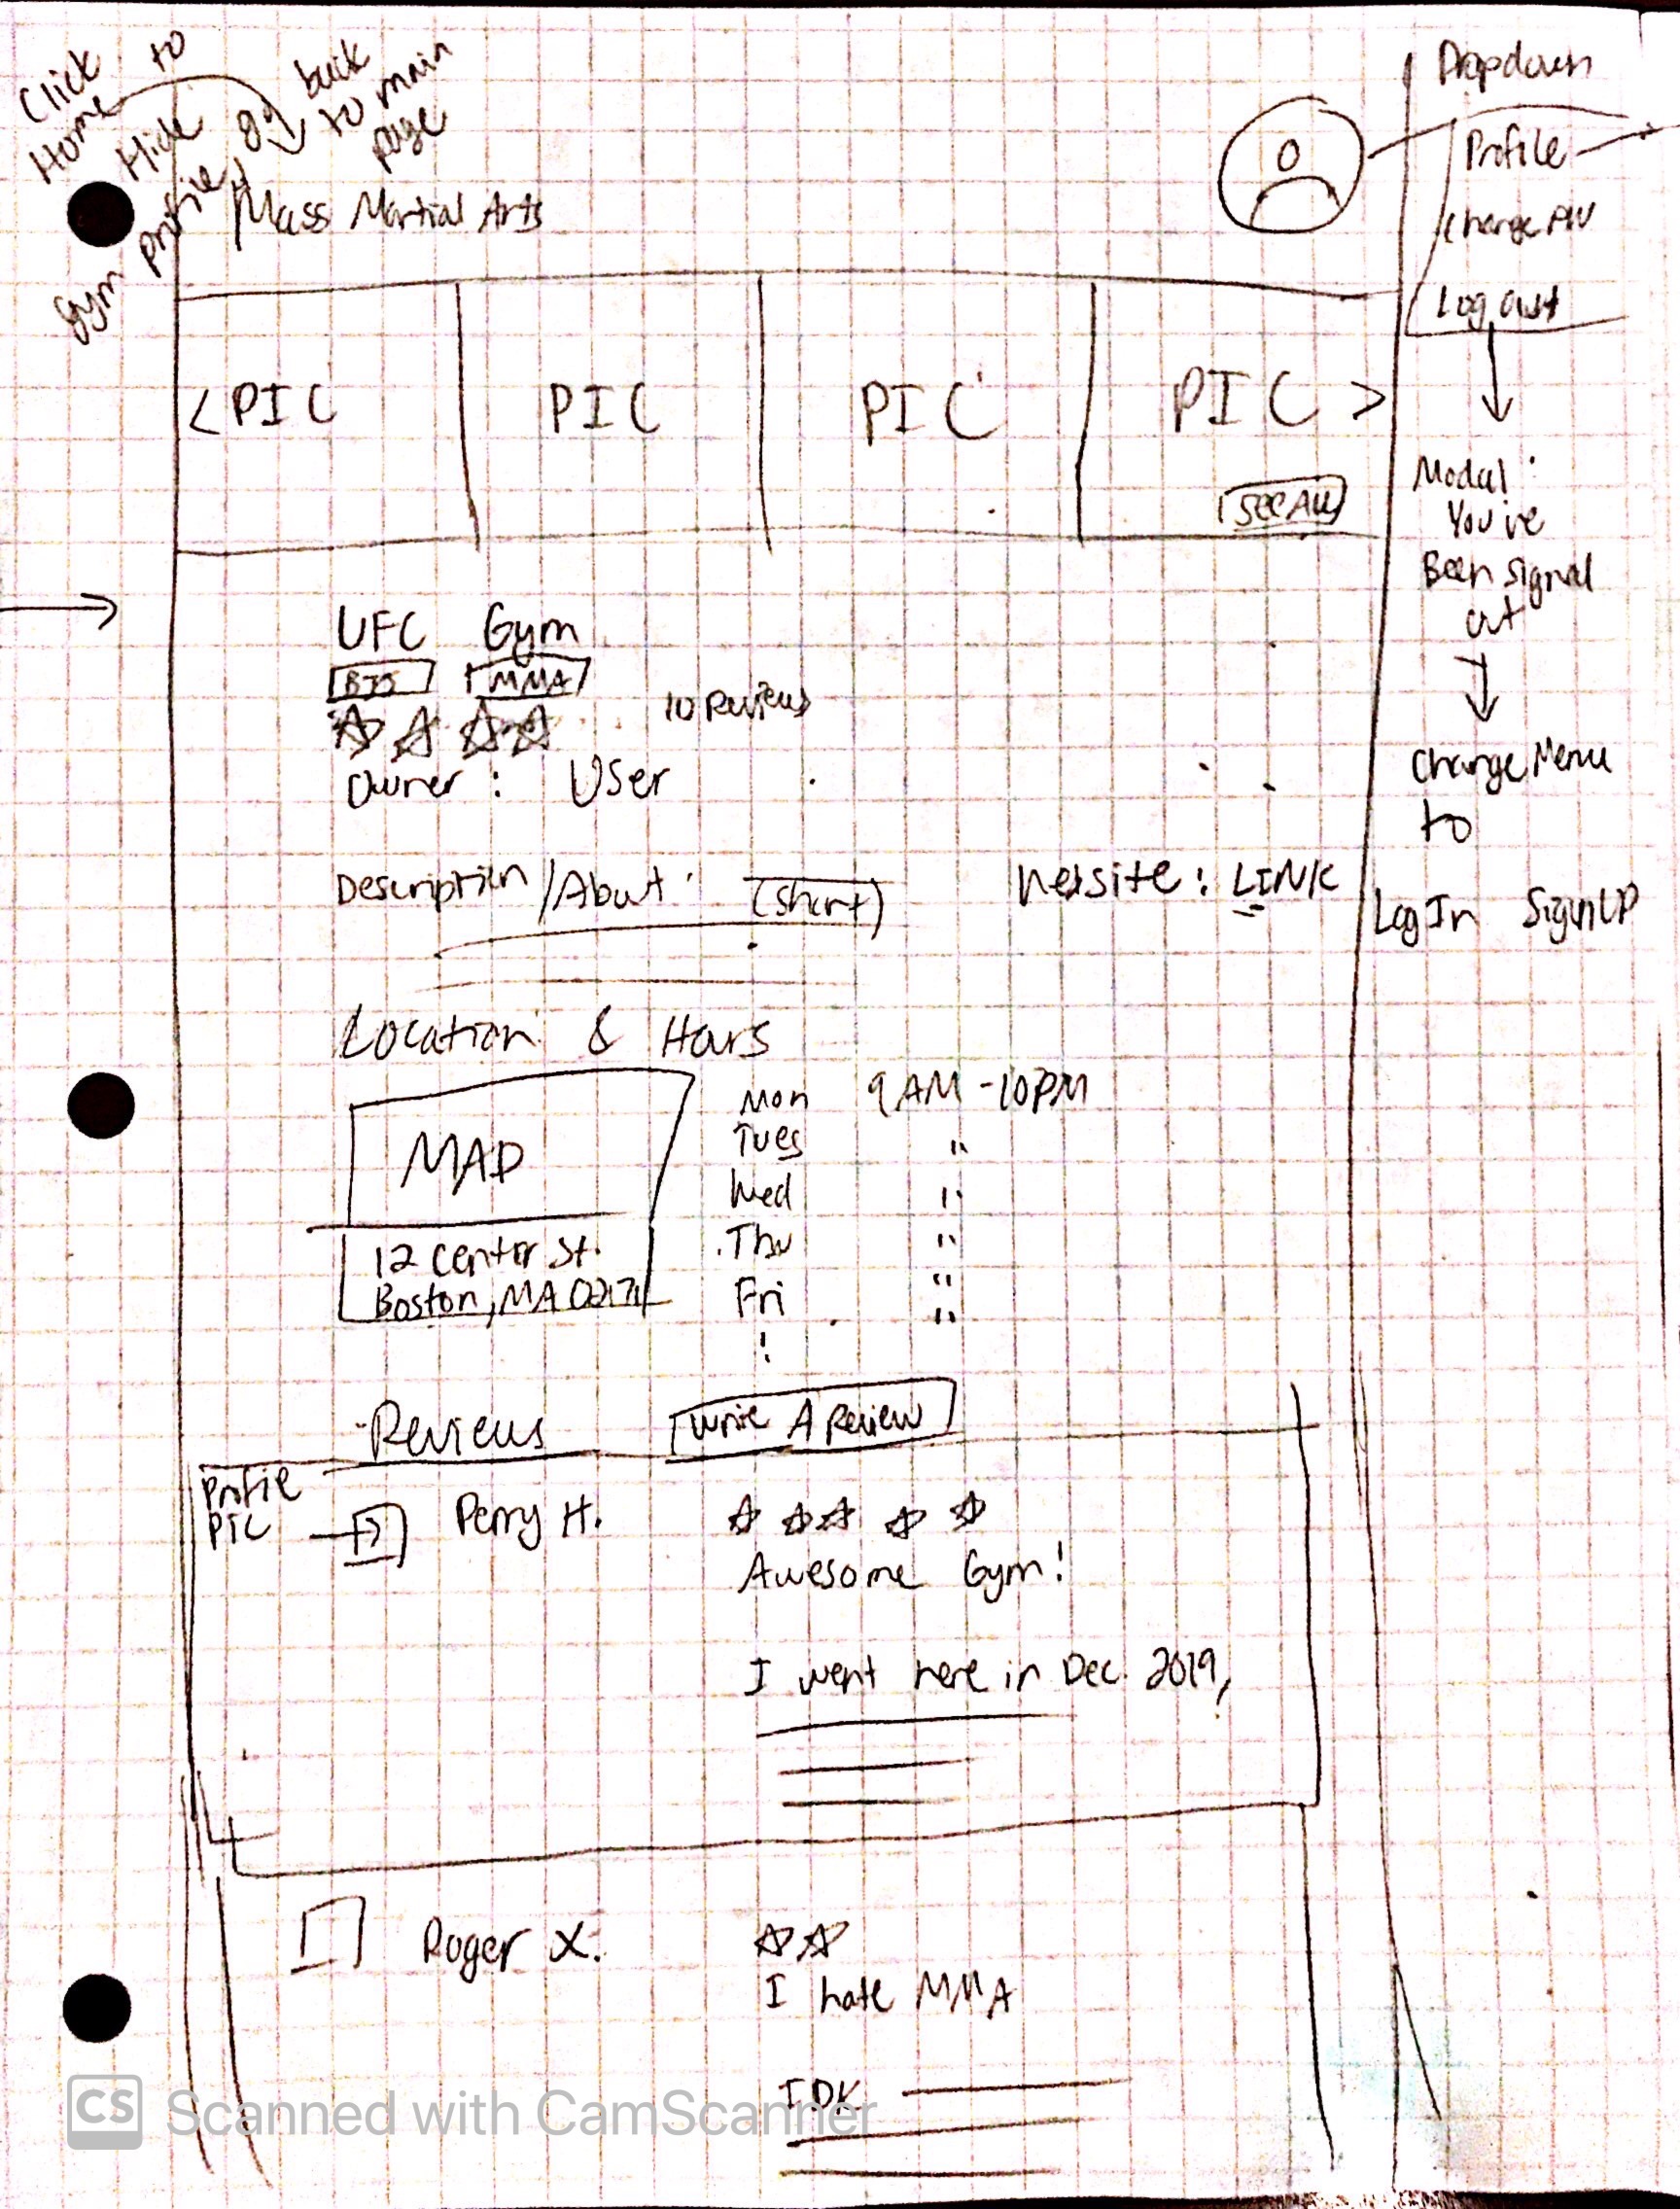 Click
Home to
Hide
Gym profile
go back
to main
page
Mass Martial Arts
Dropdown
Profile
Change PW
Log Out
Modal:
You've
Been signed
out
Change Menu
to
Log In Sign UP
< PIC PIC PIC PIC >
SEE ALL
UFC Gym
BJJ MMA
10 Reviews
Owner: User
Description/About: (short)
Website: LINK
Location & Hours
MAP
12 Center St.
Boston, MA 02171
Mon 9AM -10PM
Tues "
Wed "
Thu "
Fri "
"
Reviews Write A Review
Profile
PIC
Perry H.
Awesome Gym!
I went here in Dec. 2019,
Roger X.
I hate MMA
IDK
CS Scanned with CamScanner